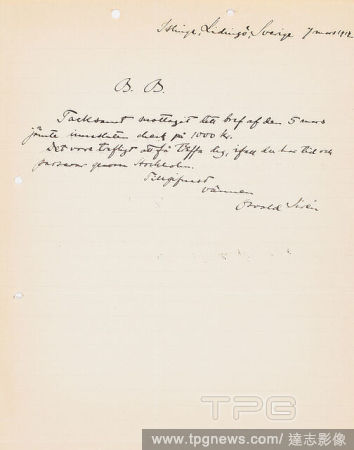 Lidingö, Sverige 7 mars 1912
B. B.
Tacksamt mottaget ditt bref af den 5 mars
jämte check på 1000 kr.
Det vore att få träffa dig, ifall du har tid och
passerar genom Stockholm.
Tillgifnast
vännen
Osvald Sirén
TPG
www.tpgnews.com/達志影像